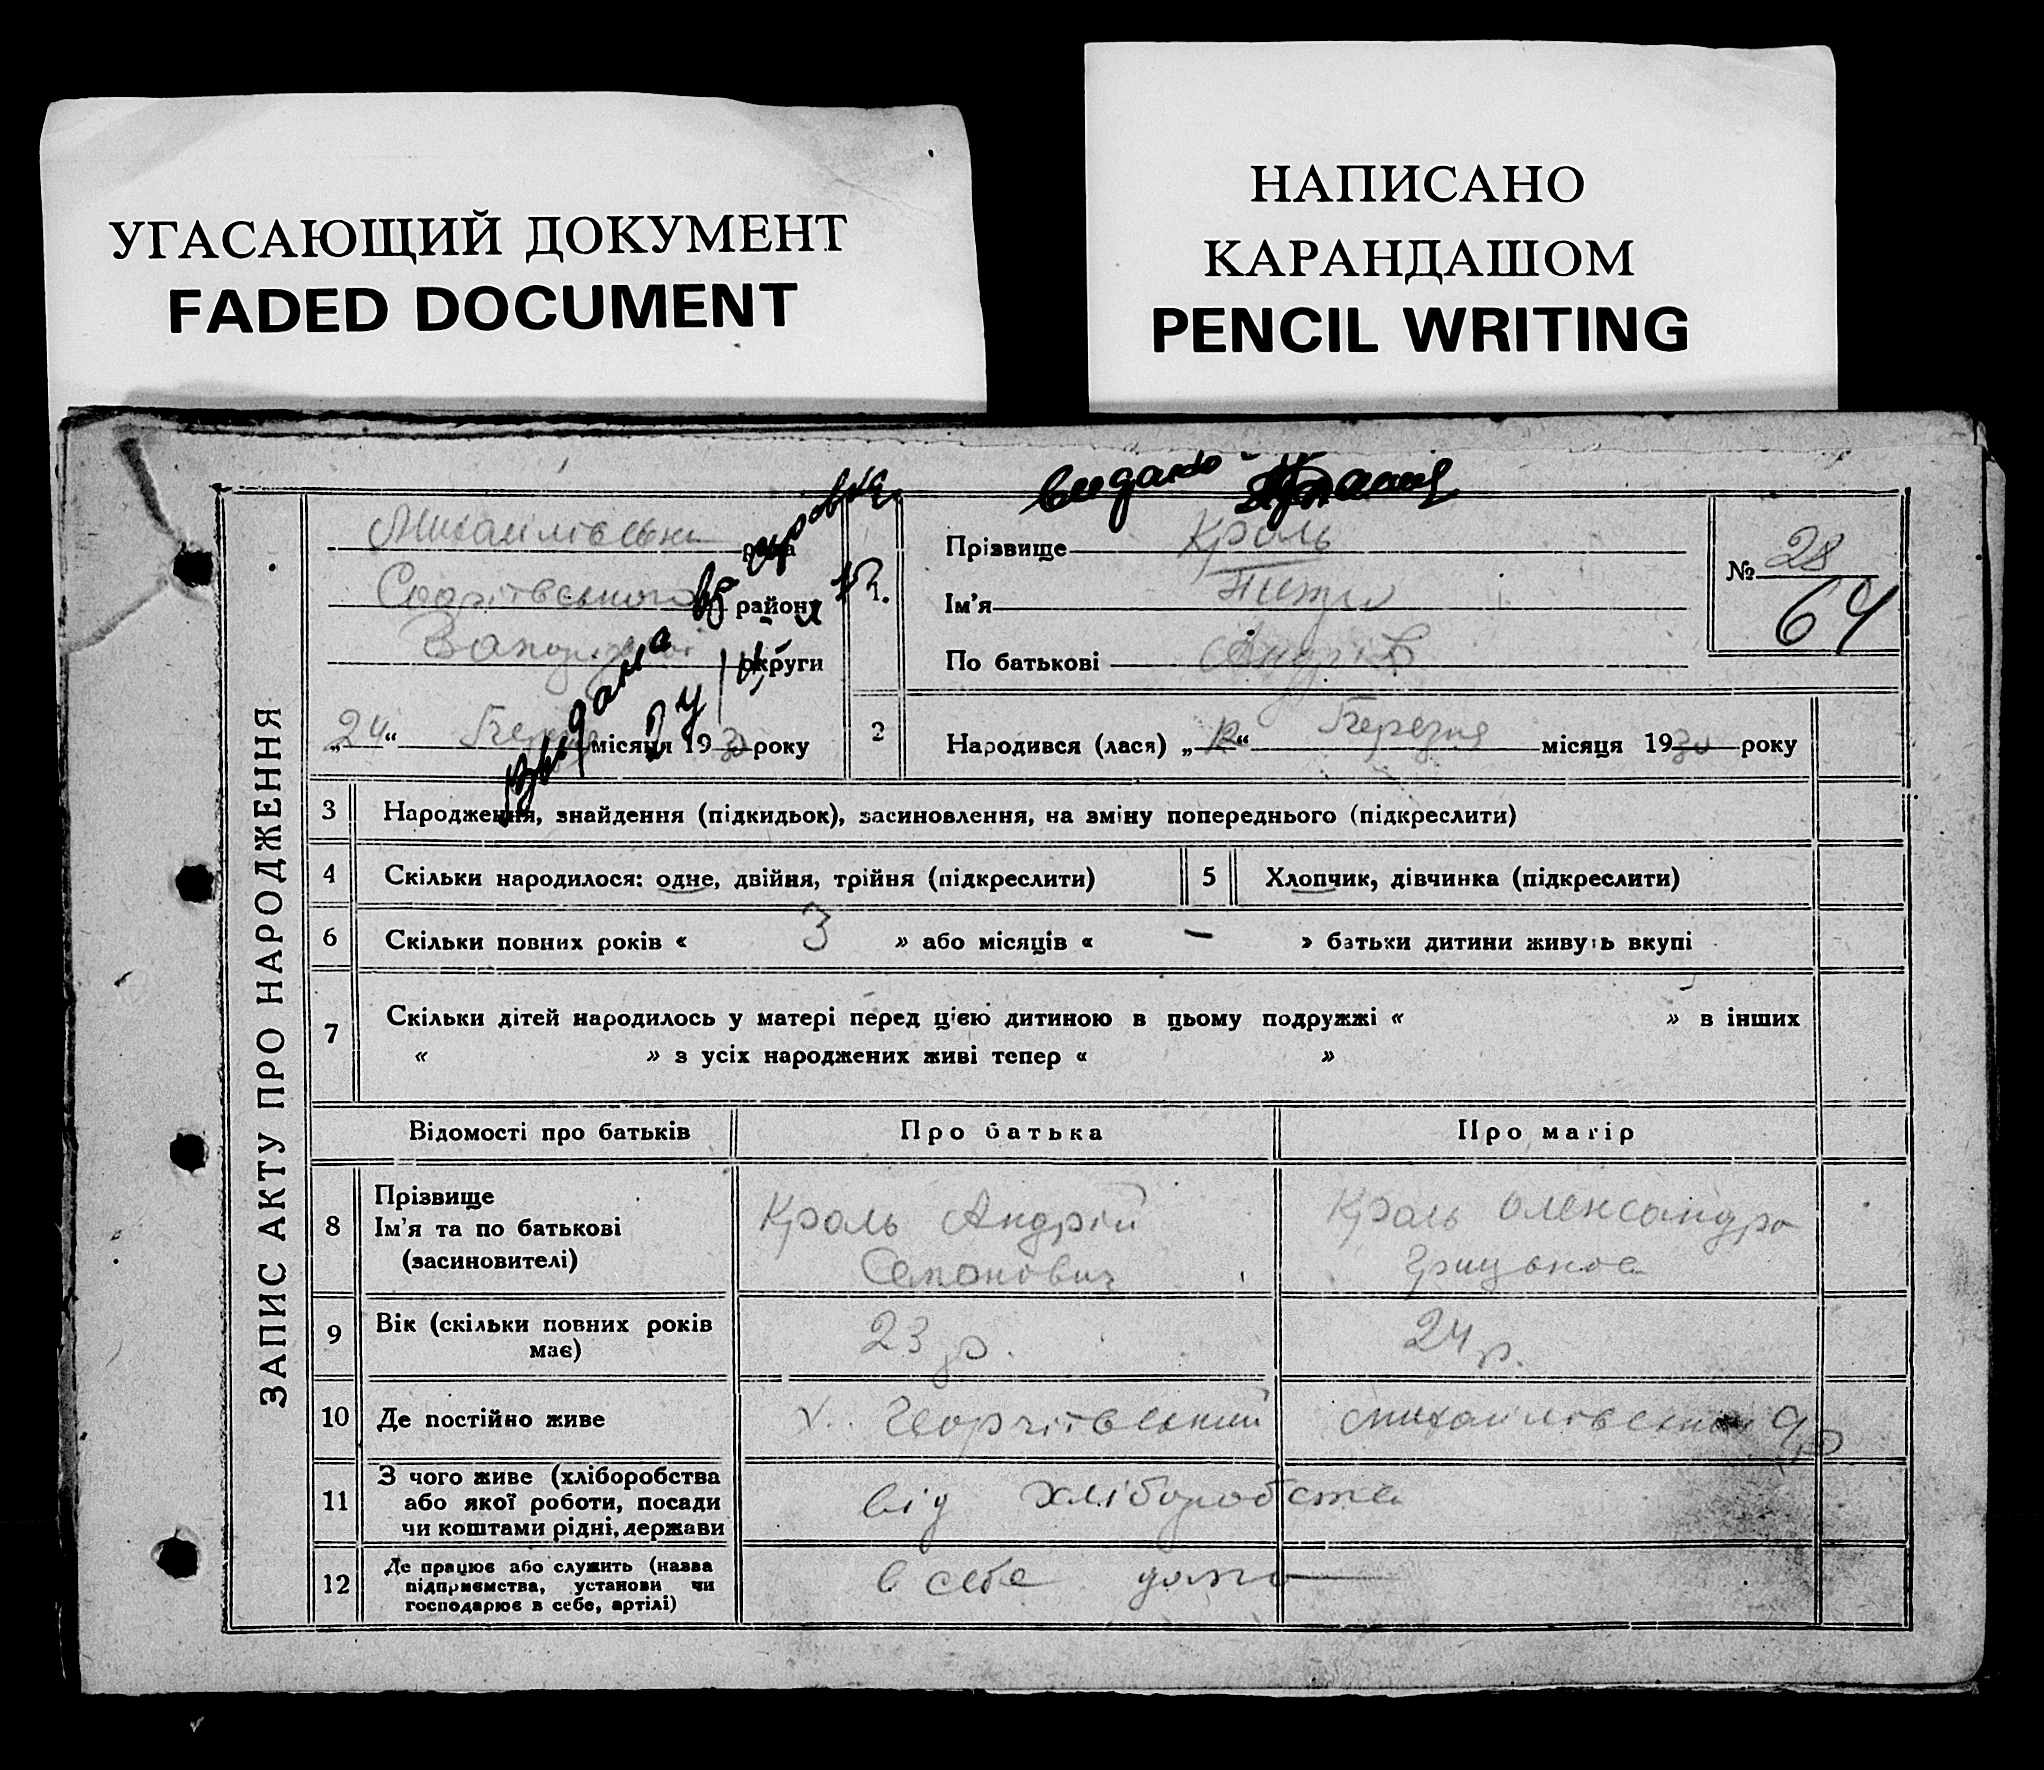 УГАСАЮЩИЙ ДОКУМЕНТ
FADED DOCUMENT
НАПИСАНО
КАРАНДАШОМ
PENCIL WRITING
ЗАПИС АКТУ ПРО НАРОДЖЕННЯ
рада
району
Запорізької округи
„24“ місяця 1930 року
видано
1. Прізвище Кроль
Ім'я
По батькові Андрів
№ 28
64
2 Народився (лася) „12“ Березня місяця 1930 року
3 Народження, знайдення (підкидьок), засиновлення, на зміну попереднього (підкреслити)
4 Скільки народилося: одне, двійня, трійня (підкреслити)
5 Хлопчик, дівчинка (підкреслити)
6 Скільки повних років « 3 » або місяців « – » батьки дитини живуть вкупі
7 Скільки дітей народилось у матері перед цією дитиною в цьому подружжі « » в інших
« » з усіх народжених живі тепер « »
Відомості про батьків Про батька Про матір
8 Прізвище
Ім'я та по батькові
(засиновителі)
Кроль Андрій
Кроль Олександра
9 Вік (скільки повних років
має)
23 р.
24 р.
10 Де постійно живе
х. Георгітвський
11 З чого живе (хліборобства
або якої роботи, посади
чи коштами рідні, держави
від хліборобства
12 Де працює або служить (назва
підприємства, установи чи
господарює в себе, артілі)
в себе дома